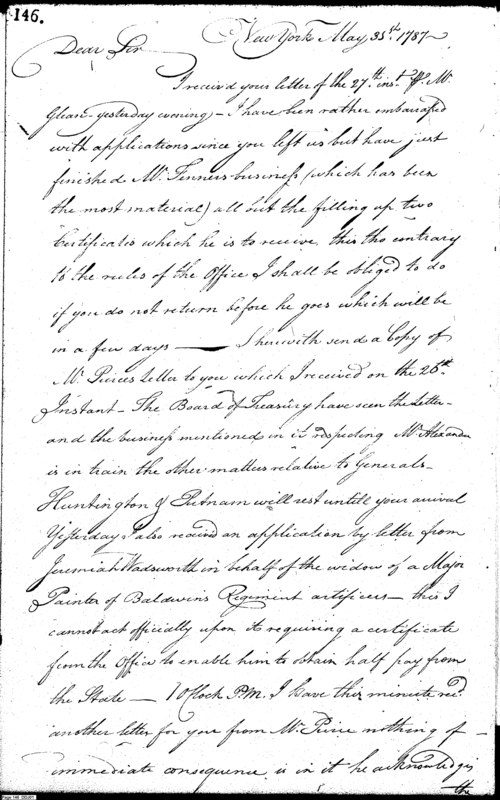 146.
New York May 35th 1787
Dear Sir
I receivd your letter of the 27th inst. pr. Mr.
Glean yesterday evening – I have been rather embarrassed
with applications since you left us but have just
finished Mr. Finners business (which has been
the most material) all but the filling up two
Certificates which he is to receive, this tho contrary
to the rules of the Office I shall be obliged to do
if you do not return before he goes which will be
in a few days — I herewith send a Copy of
Mr. Pierces Letter to you which I received on the 26th
Instant – The Board of Treasury have seen the Letter –
and the business mentioned in it respecting Mr. Alexander
is in train the other matters relative to Generals –
Huntington & Putnam will rest untill your arrival
Yesterday I also received an application by letter from
Jeremiah Wadsworth in behalf of the widow of a Major
Painter of Baldwins Regiment artificers – this I
cannot act officially upon it requiring a certificate
from the Office to enable him to obtain half pay from
the State — 1 OClock P.M. I have this minute recd.
another letter for you from Mr. Pierce nothing of –
immediate consequence is in it he acknowledges
the